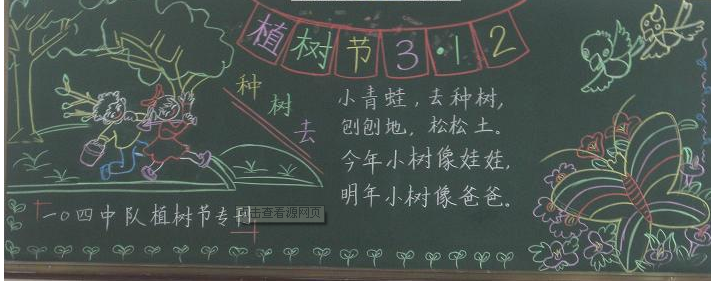 植树节3·12
种树去
小青蛙,去种树,
刨刨地,松松土。
今年小树像娃娃,
明年小树像爸爸。
一〇四中队植树节专刊
击查看源网页